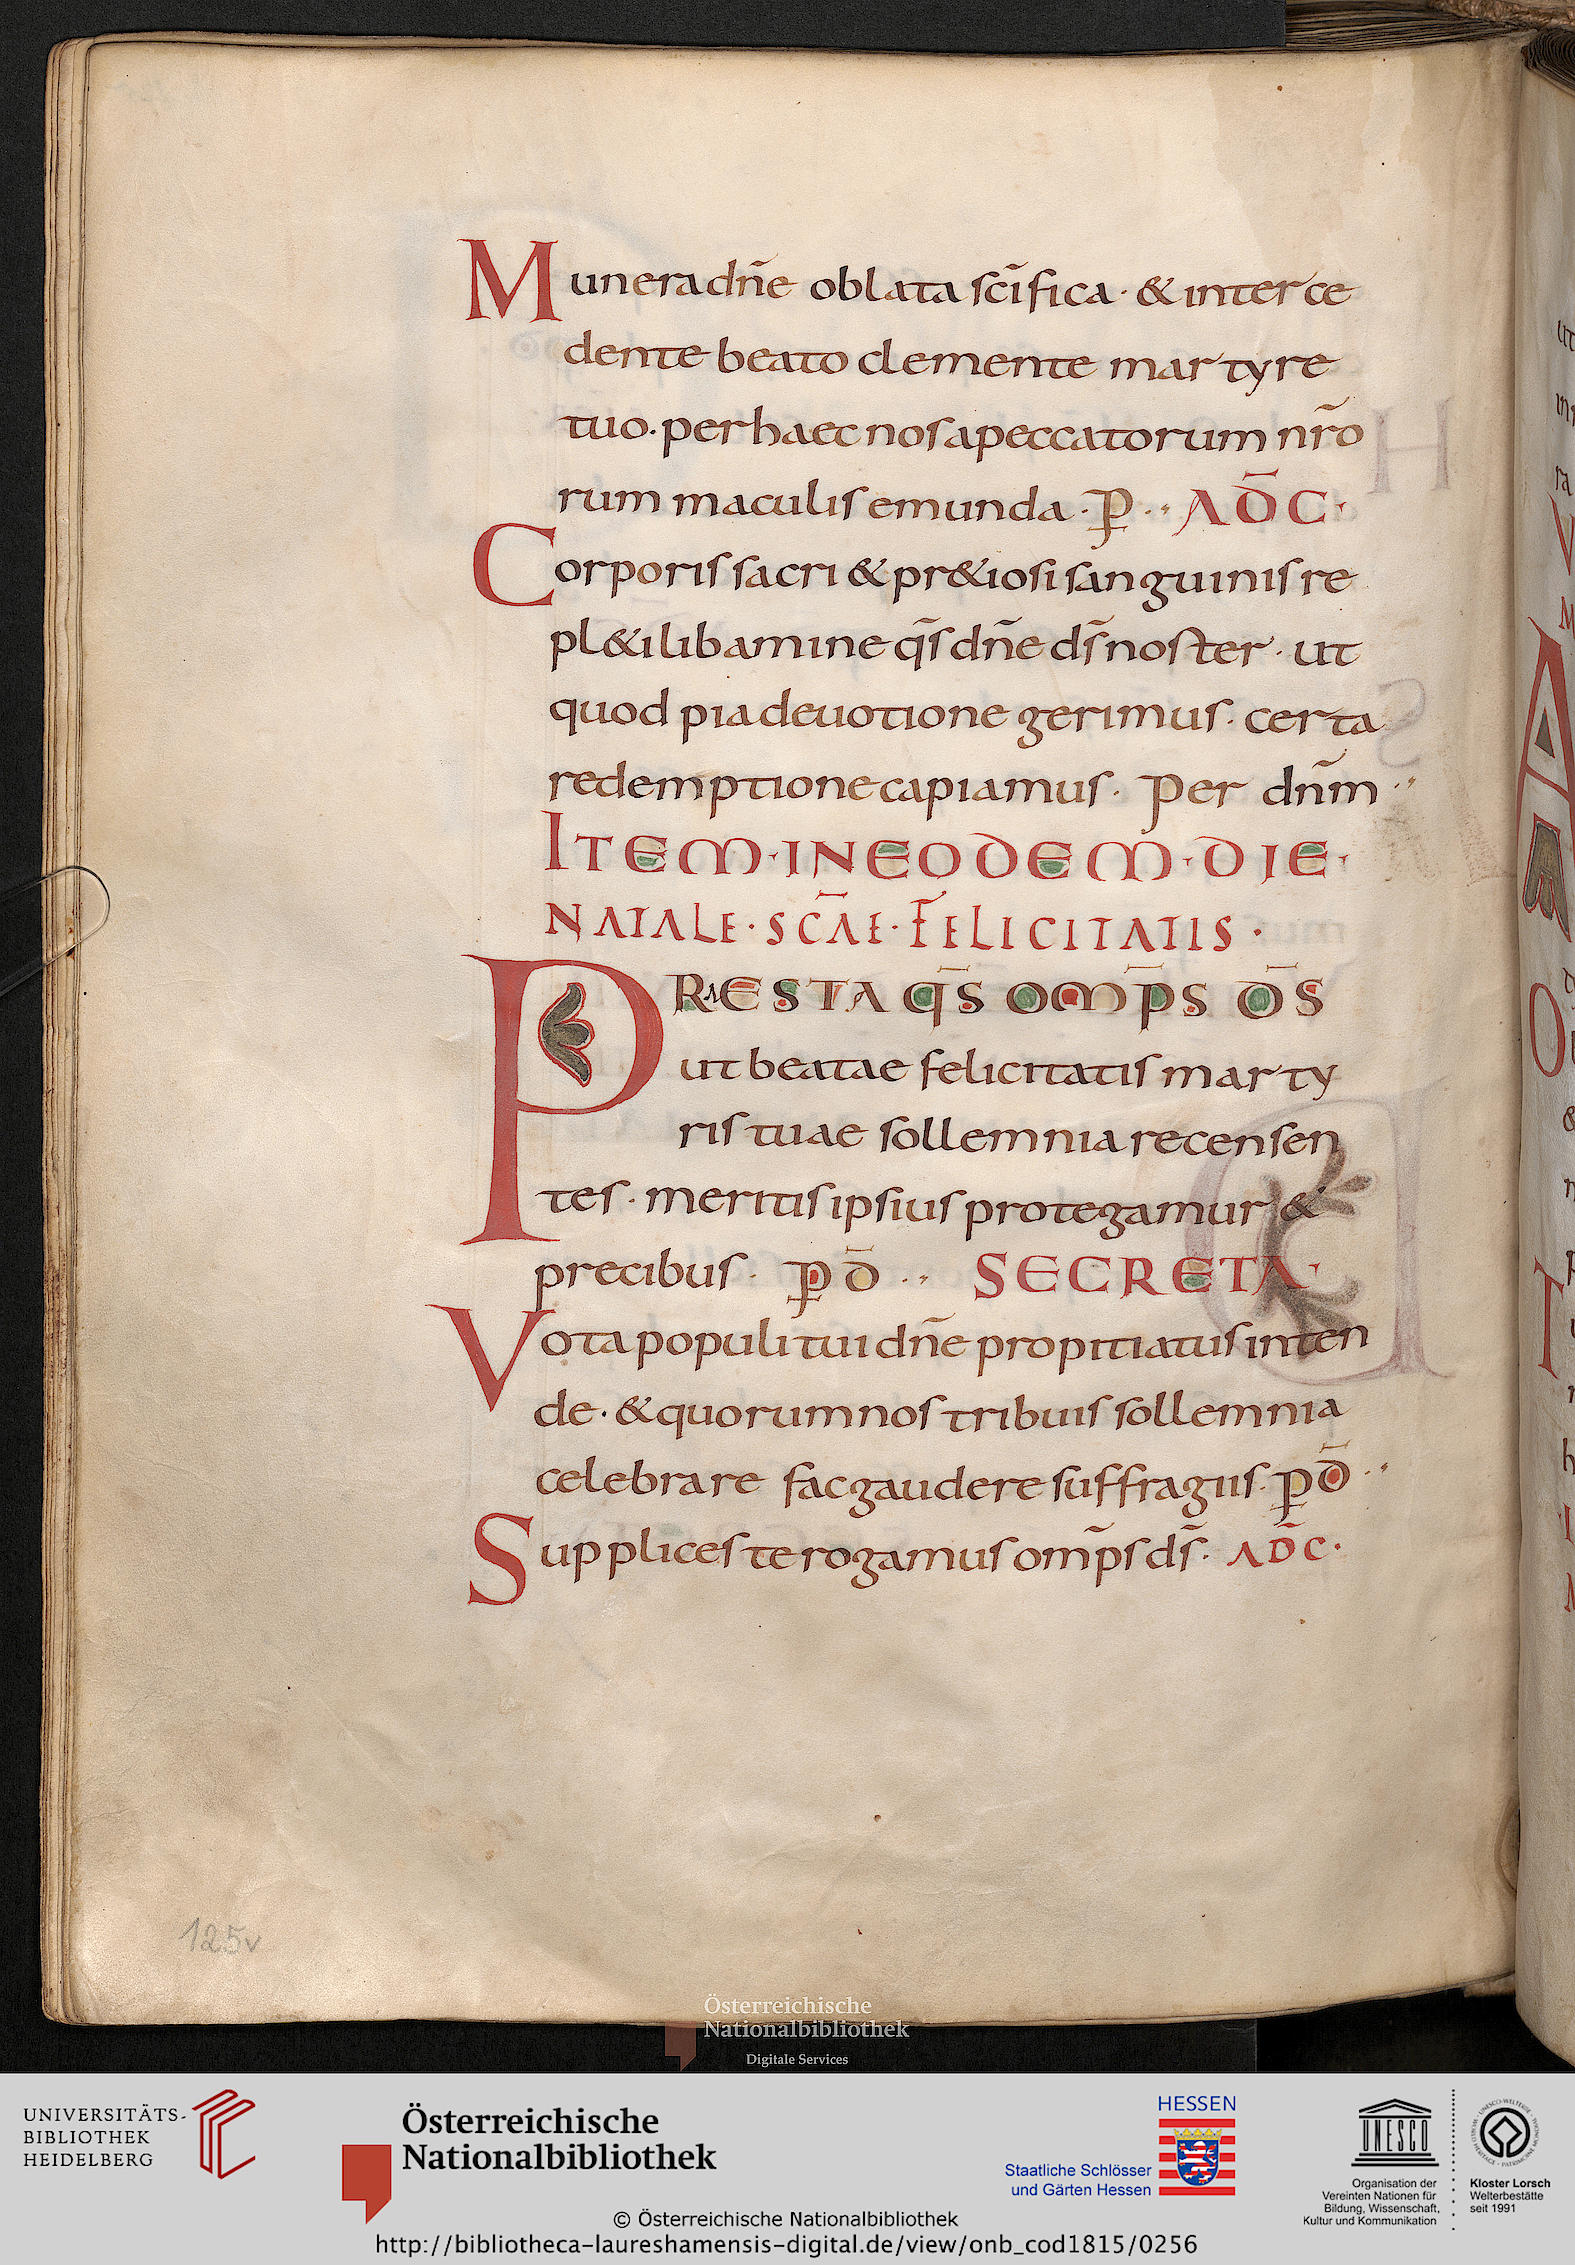 Munera dn̄e oblata sc̄ifica · & interce
dente beato clemente martyre
tuo · per haec nos a peccatorum nr̄o
rum maculis emunda · P · AD̄C ·
Corporis sacri & pr&iosi sanguinis re
pl&i libamine qs̄ dn̄e ds̄ noster · ut
quod pia deuotione gerimus · certa
redemptione capiamus · Per dn̄m
ITEM · IN EODEM · DIE ·
NATALE · SC̄AE · FELICITATIS ·
PRAESTA QS̄ OMP̄S DS̄
ut beatae felicitatis marty
ris tuae sollemnia recensen
tes · meritis ipsius protegamur &
precibus · p d̄ SECRETA ·
Vota populi tui dn̄e propitiatus inten
de · & quorum nos tribuis sollemnia
celebrare fac gaudere suffragiis · p d̄
Supplices te rogamus om̄ps ds̄ · AD̄C ·
125v
Österreichische
Nationalbibliothek
Digitale Services
UNIVERSITÄTS-
BIBLIOTHEK
HEIDELBERG
Österreichische
Nationalbibliothek
HESSEN
Staatliche Schlösser
und Gärten Hessen
UNESCO
Organisation der
Vereinten Nationen für
Bildung, Wissenschaft,
Kultur und Kommunikation
Kloster Lorsch
Welterbestätte
seit 1991
© Österreichische Nationalbibliothek
http://bibliotheca-laureshamensis-digital.de/view/onb_cod1815/0256